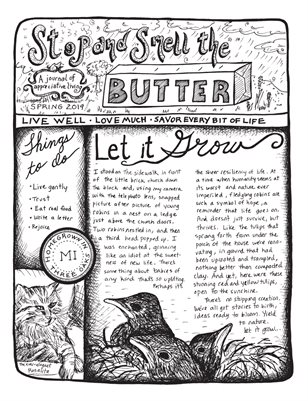 Stop and Smell the
BUTTER
A journal of
appreciative living
SPRING 2019
LIVE WELL • LOVE MUCH • SAVOR EVERY BIT OF LIFE
Things
to do
• Live gently
• Trust
• Eat real food
• Write a letter
• Rejoice
MI
The ever-elegant
Let it Grow
I stood on the sidewalk, in front
of the little brick church down
the block and, using my camera
with the telephoto lens, snapped
picture after picture of young
robins in a nest on a ledge
just above the church doors.
Two robins nested in, and then
a third head popped up. I
was enchanted, grinning
like an idiot at the sweet-
ness of new life. There's
something about babies of
any kind that's so uplifting.
Perhaps it's
the sheer resiliency of life. At
a time when humanity seems at
its worst and nature ever
imperiled, fledgling robins are
such a symbol of hope, a
reminder that life goes on,
and doesn't just survive, but
thrives. Like the tulips that
sprang forth from under the
porch of the house we're reno-
vating, in ground that had
been uprooted and trampled,
nothing better than compacted
clay. And yet, here were these
stunning red and yellow tulips,
open to the sunshine.
There's no stopping creation.
We're all get stories to birth,
ideas ready to bloom. Yield
to nature.
Let it grow.